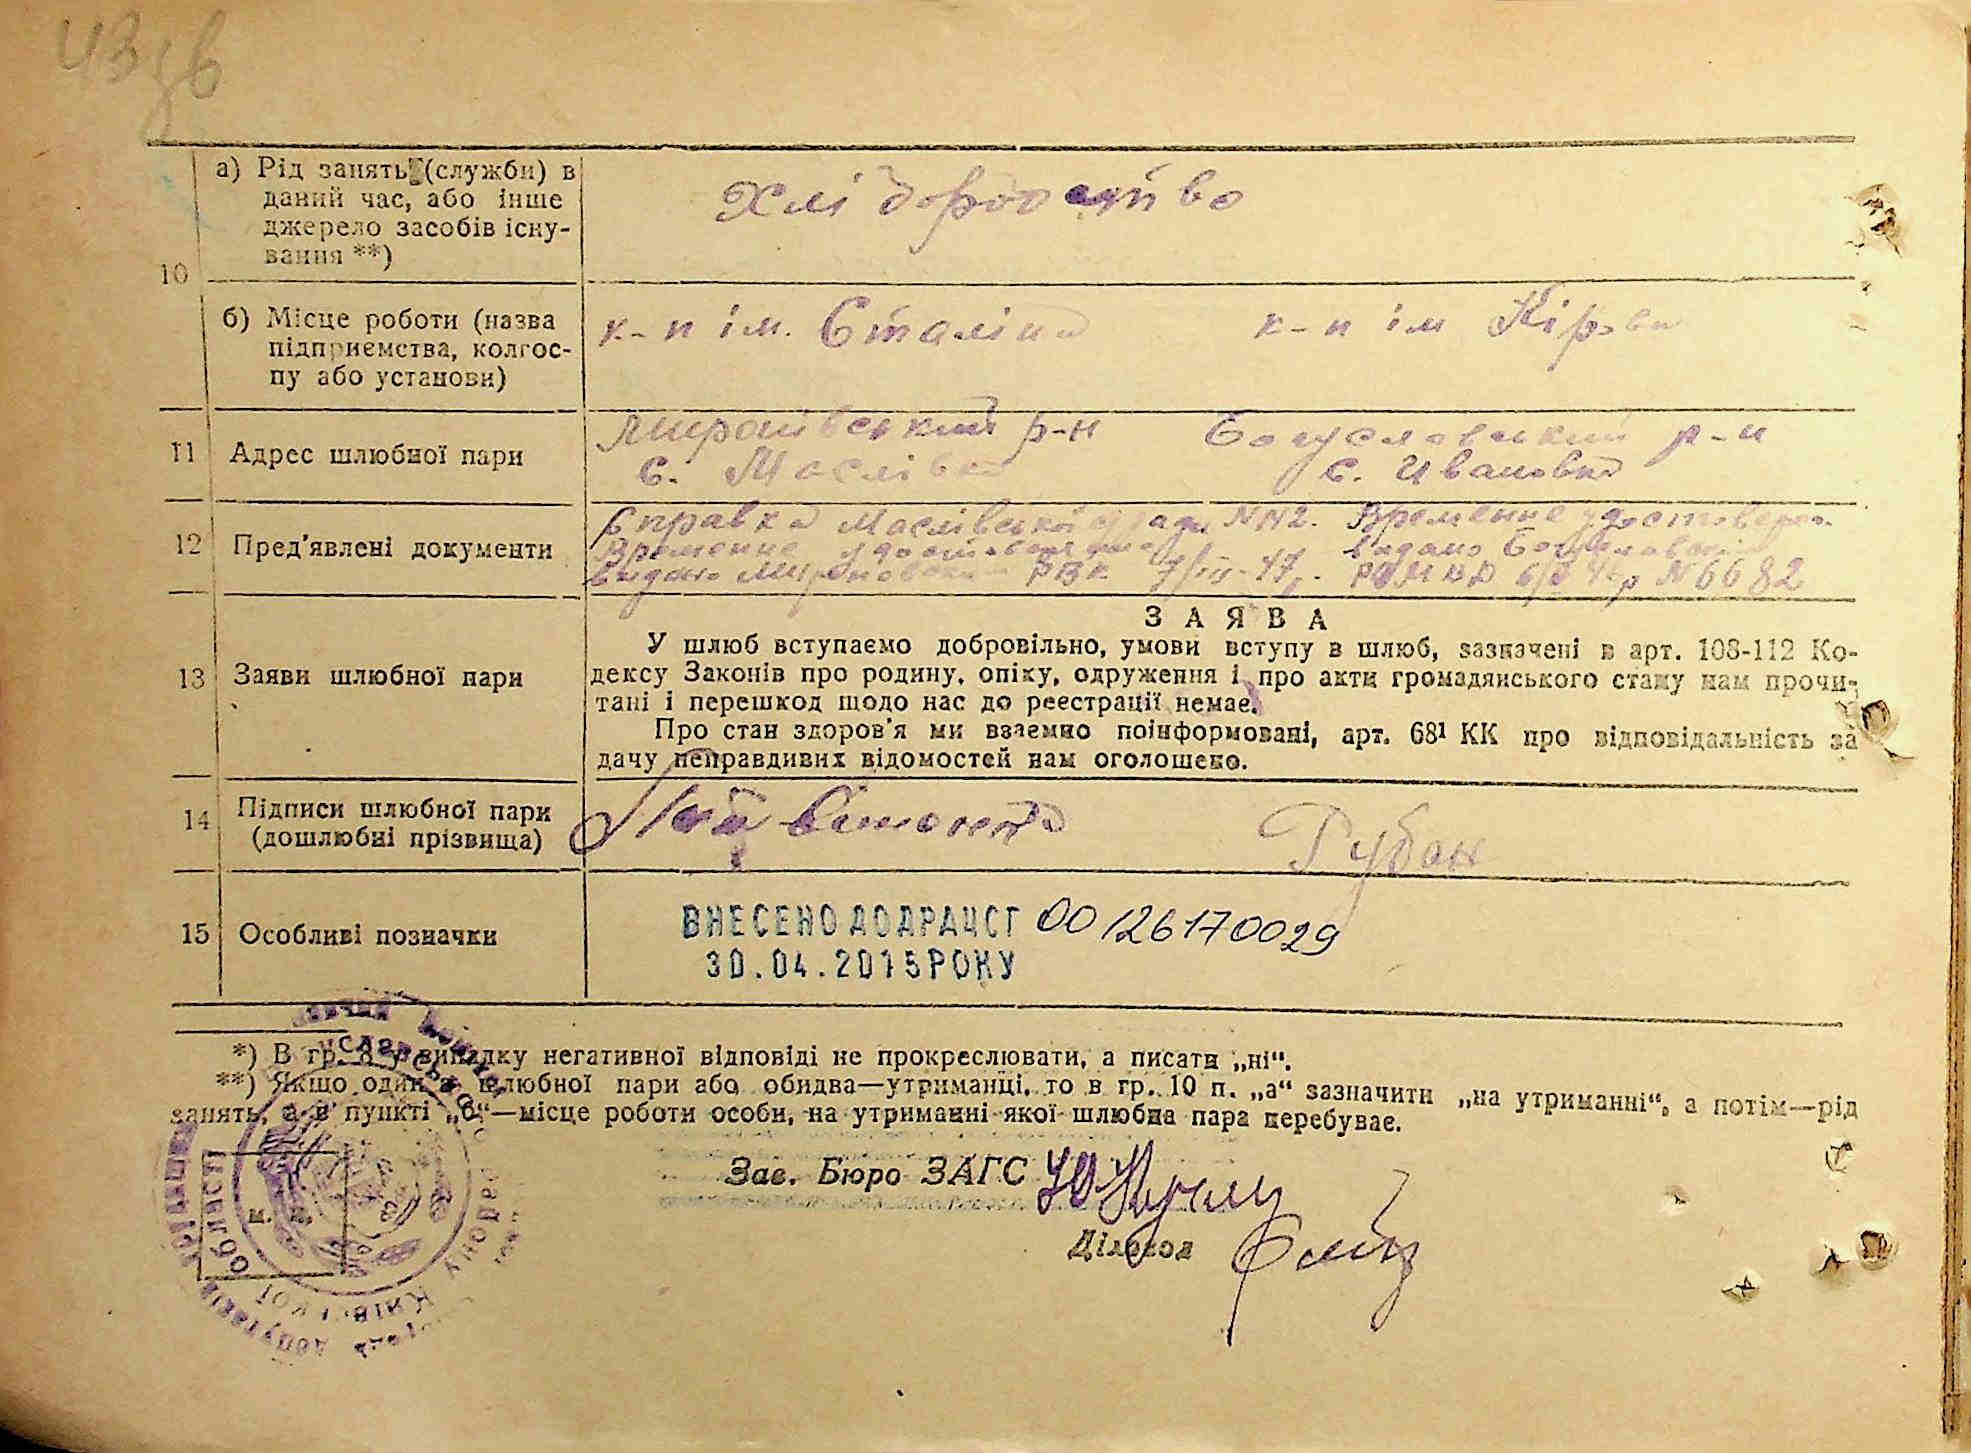 43зв
а) Рід занять (служби) в
даний час, або інше
джерело засобів існу-
вання **)
Хліборобство
10
б) Місце роботи (назва
підприємства, колгос-
пу або установи)
к-п ім. Сталіна к-п ім Кірова
11 Адрес шлюбної пари
Миронівський р-н Богуславський р-н
с. Маслівка с. Ивановка
12 Пред'явлені документи
Справка Маслівської с/ради №112. Временне удостоверен.
Временне удостоверение видано Богуславским
видано Мироновским РВК РОМВД №6682
13 Заяви шлюбної пари
ЗАЯВА
У шлюб вступаємо добровільно, умови вступу в шлюб, зазначені в арт. 108-112 Ко-
дексу Законів про родину, опіку, одруження і про акти громадянського стану нам прочи-
тані і перешкод щодо нас до реєстрації немає.
Про стан здоров'я ми взаємно поінформовані, арт. 68¹ КК про відповідальність за
дачу неправдивих відомостей нам оголошено.
14 Підписи шлюбної пари
(дошлюбні прізвища)
Рубан
15 Особливі позначки
ВНЕСЕНО ДО ДРАЦСГ 00126170029
30.04.2015 РОКУ
*) В гр. 8 у випадку негативної відповіді не прокреслювати, а писати „ні“.
**) Якщо один з шлюбної пари або обидва—утриманці, то в гр. 10 п. „а“ зазначити „на утриманні“, а потім—рід
занять, а в пункті „б“—місце роботи особи, на утриманні якої шлюбна пара перебуває.
Зав. Бюро ЗАГС
Діловод
м. п.